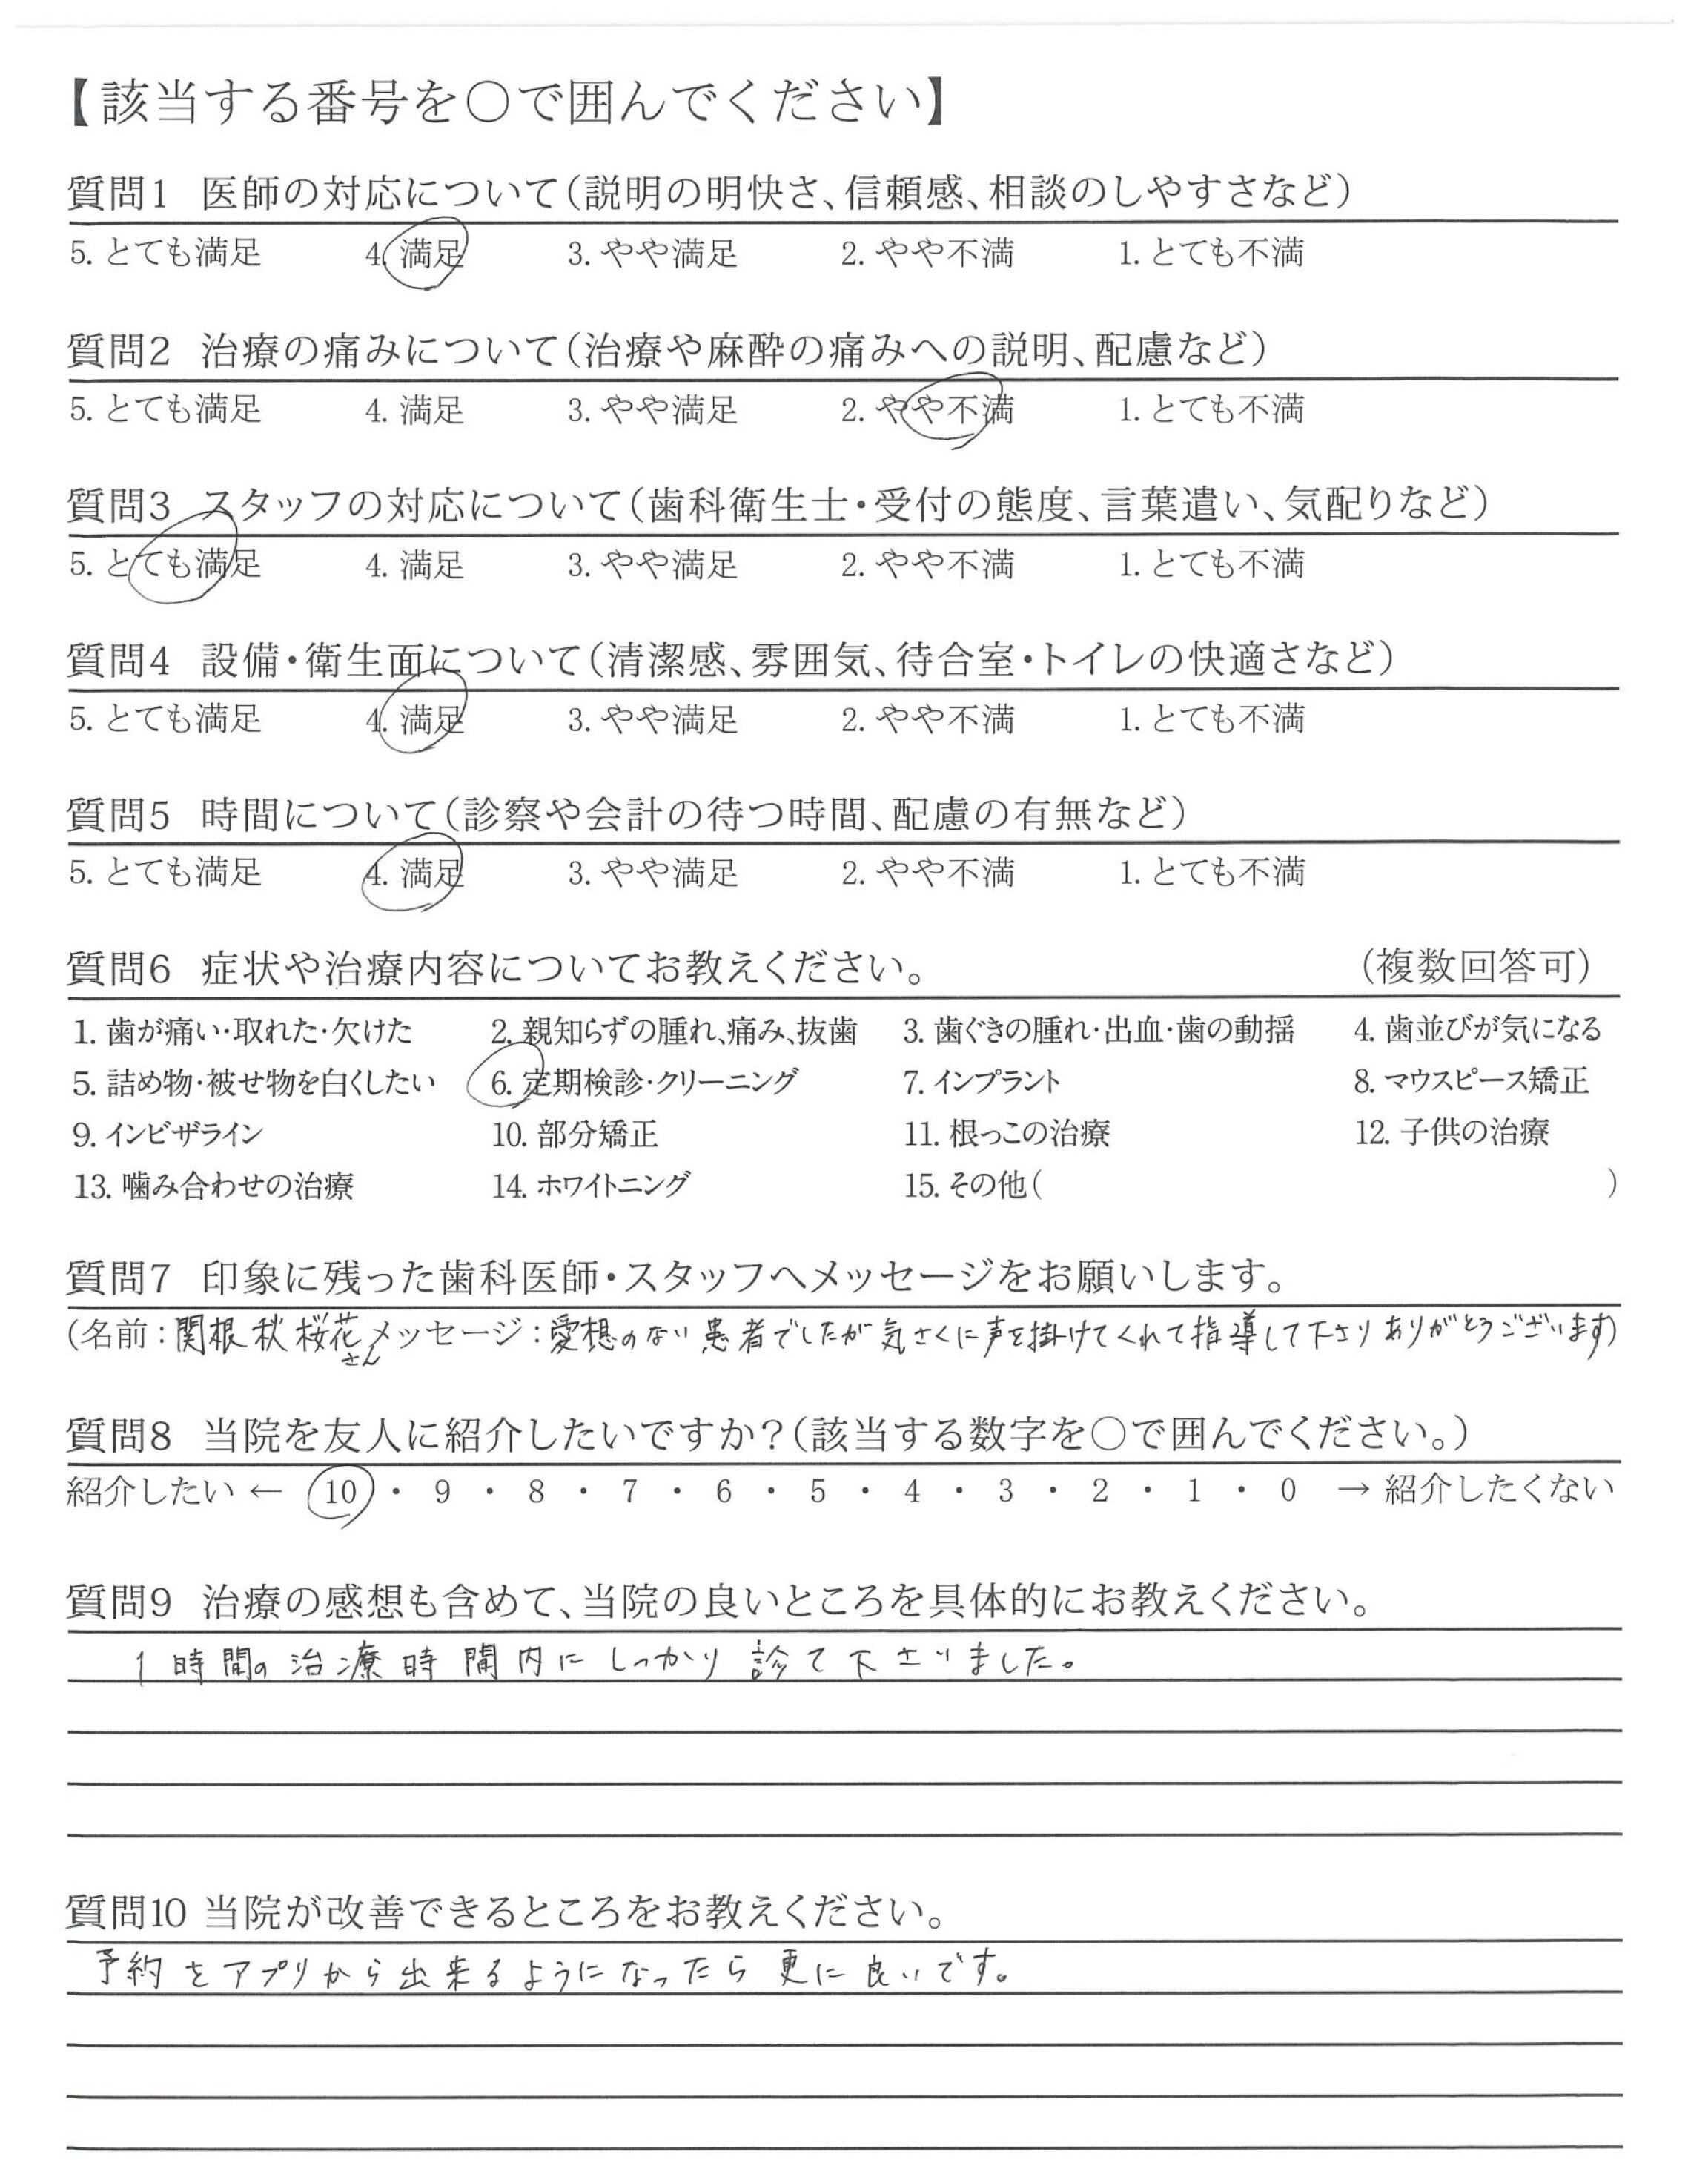 【該当する番号を○で囲んでください】
質問1 医師の対応について(説明の明快さ、信頼感、相談のしやすさなど)
5. とても満足 4. 満足 3. やや満足 2. やや不満 1. とても不満
質問2 治療の痛みについて(治療や麻酔の痛みへの説明、配慮など)
5. とても満足 4. 満足 3. やや満足 2. やや不満 1. とても不満
質問3 スタッフの対応について(歯科衛生士・受付の態度、言葉遣い、気配りなど)
5. とても満足 4. 満足 3. やや満足 2. やや不満 1. とても不満
質問4 設備・衛生面について(清潔感、雰囲気、待合室・トイレの快適さなど)
5. とても満足 4. 満足 3. やや満足 2. やや不満 1. とても不満
質問5 時間について(診察や会計の待つ時間、配慮の有無など)
5. とても満足 4. 満足 3. やや満足 2. やや不満 1. とても不満
質問6 症状や治療内容についてお教えください。 (複数回答可)
1. 歯が痛い・取れた・欠けた 2. 親知らずの腫れ、痛み、抜歯 3. 歯ぐきの腫れ・出血・歯の動揺 4. 歯並びが気になる
5. 詰め物・被せ物を白くしたい 6. 定期検診・クリーニング 7. インプラント 8. マウスピース矯正
9. インビザライン 10. 部分矯正 11. 根っこの治療 12. 子供の治療
13. 噛み合わせの治療 14. ホワイトニング 15. その他( )
質問7 印象に残った歯科医師・スタッフへメッセージをお願いします。
(名前:関根秋桜花さん メッセージ:愛想のない患者でしたが気さくに声を掛けてくれて指導して下さりありがとうございます)
質問8 当院を友人に紹介したいですか?(該当する数字を○で囲んでください。)
紹介したい ← 10 ・ 9 ・ 8 ・ 7 ・ 6 ・ 5 ・ 4 ・ 3 ・ 2 ・ 1 ・ 0 → 紹介したくない
質問9 治療の感想も含めて、当院の良いところを具体的にお教えください。
1時間の治療時間内にしっかり診て下さいました。
質問10 当院が改善できるところをお教えください。
予約をアプリから出来るようになったら更に良いです。